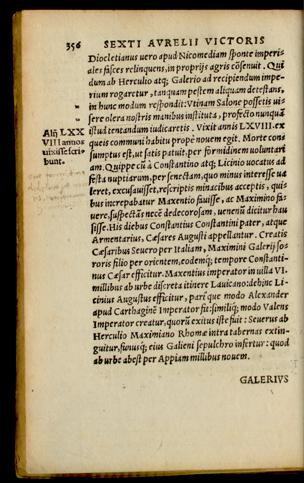 356 SEXTI AVRELII VICTORIS
Diocletianus uero apud Nicomediam sponte imperi-
ales fasces relinquens, in proprijs agris cōsenuit. Qui
dum ab Herculio atq; Galerio ad recipiendum impe-
rium rogaretur, tanquam pestem aliquam detestans,
in hunc modum respondit: Vtinam Salone possetis ui-
sere olera nostris manibus instituta, profecto nunquā
istud tentandum iudicaretis. Vixit annis LXVIII. ex
Alij LXX
VIII annos
uixisse scri-
bunt.
queis communi habitu propè nouem egit. Morte con
sumptus est, ut satis patuit, per formidinem uoluntari
am. Quippe cū à Constantino atq; Licinio uocatus ad
festa nuptiarum, per senectam, quo minus interesse ua
leret, excusauisset, rescriptis minacibus acceptis, quis
bus increpabatur Maxentio fauisse, ac Maximino fa-
uere, suspectās necē dedecorosam, uenenū dicitur hau
sisse. His diebus Constantius Constantini pater, atque
Armentarius, Cæsares Augusti appellantur. Creatis
Cæsaribus Seuero per Italiam, Maximini Galerij so-
roris filio per orientem, eodemq; tempore Constanti-
nus Cæsar efficitur. Maxentius imperator in uilla VI.
millibus ab urbe discreta itinere Lauicano: dehinc Li-
cinius Augustus efficitur, pari que modo Alexander
apud Carthaginē Imperator fit: similiq; modo Valens
Imperator creatur, quorū exitus iste fuit: Seuerus ab
Herculio Maximiano Rhomæ intra tabernas extin-
guitur, funusq; eius Galieni sepulchro infertur: quod
ab urbe abest per Appiam millibus nouem.
GALERIVS